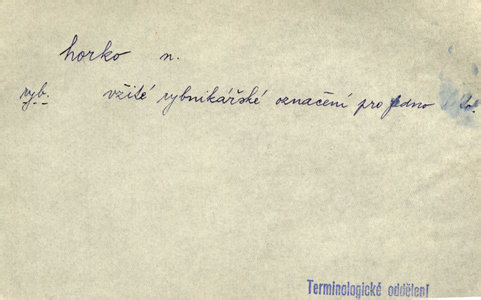 horko n.
ryb. vžité rybnikářské označení pro jedno
Terminologické oddělení